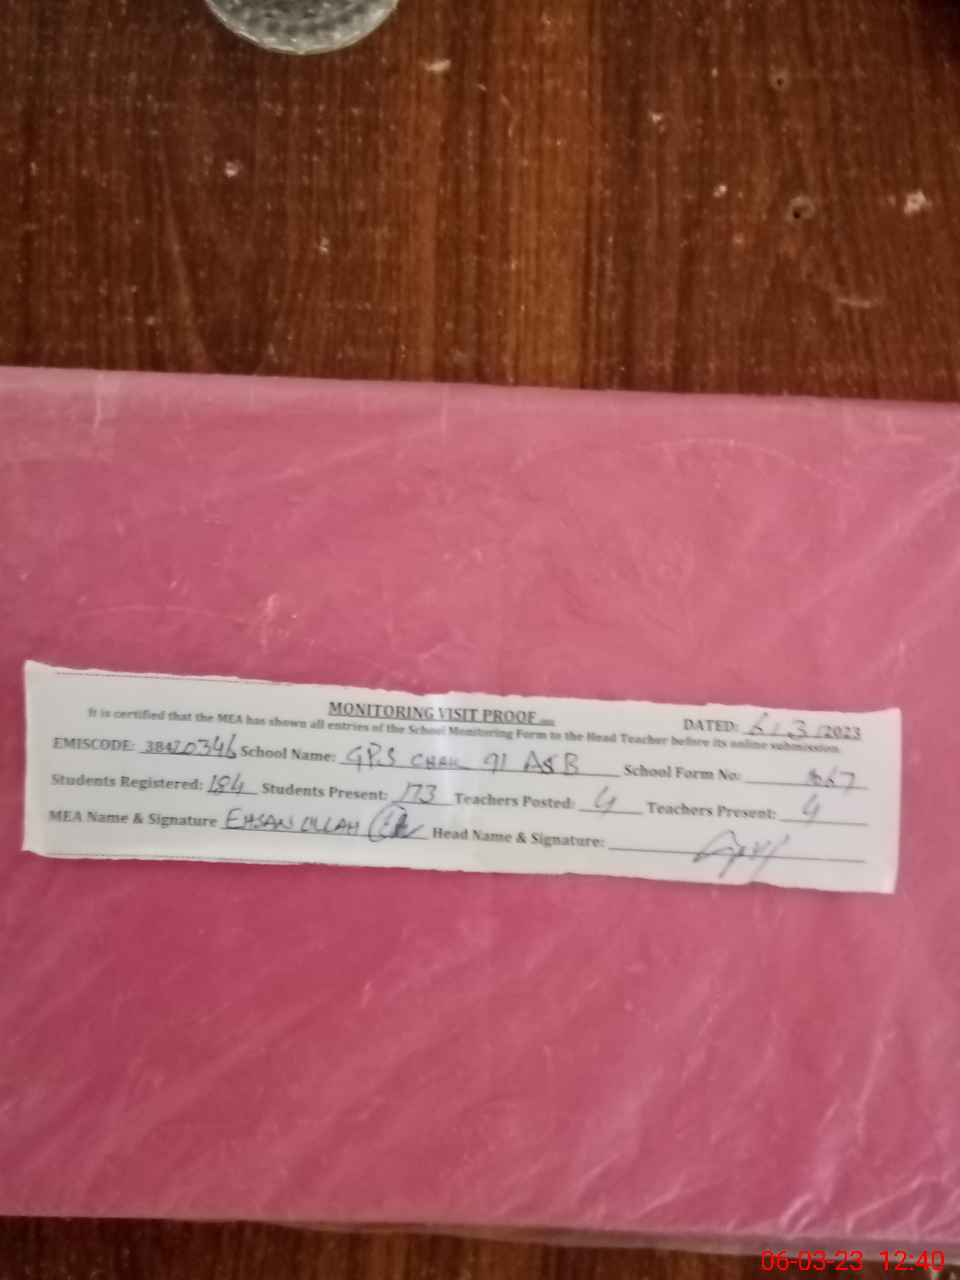 MONITORING VISIT PROOF
DATED: 6 / 3 /2023
It is certified that the MEA has shown all entries of the School Monitoring Form to the Head Teacher before its online submission.
EMISCODE: 38420346 School Name: GPS CHAK 91 ASB School Form No:
Students Registered: 184 Students Present: 173 Teachers Posted: 4 Teachers Present: 4
MEA Name & Signature EHSAN ULLAH Head Name & Signature:
06-03-23 12:40